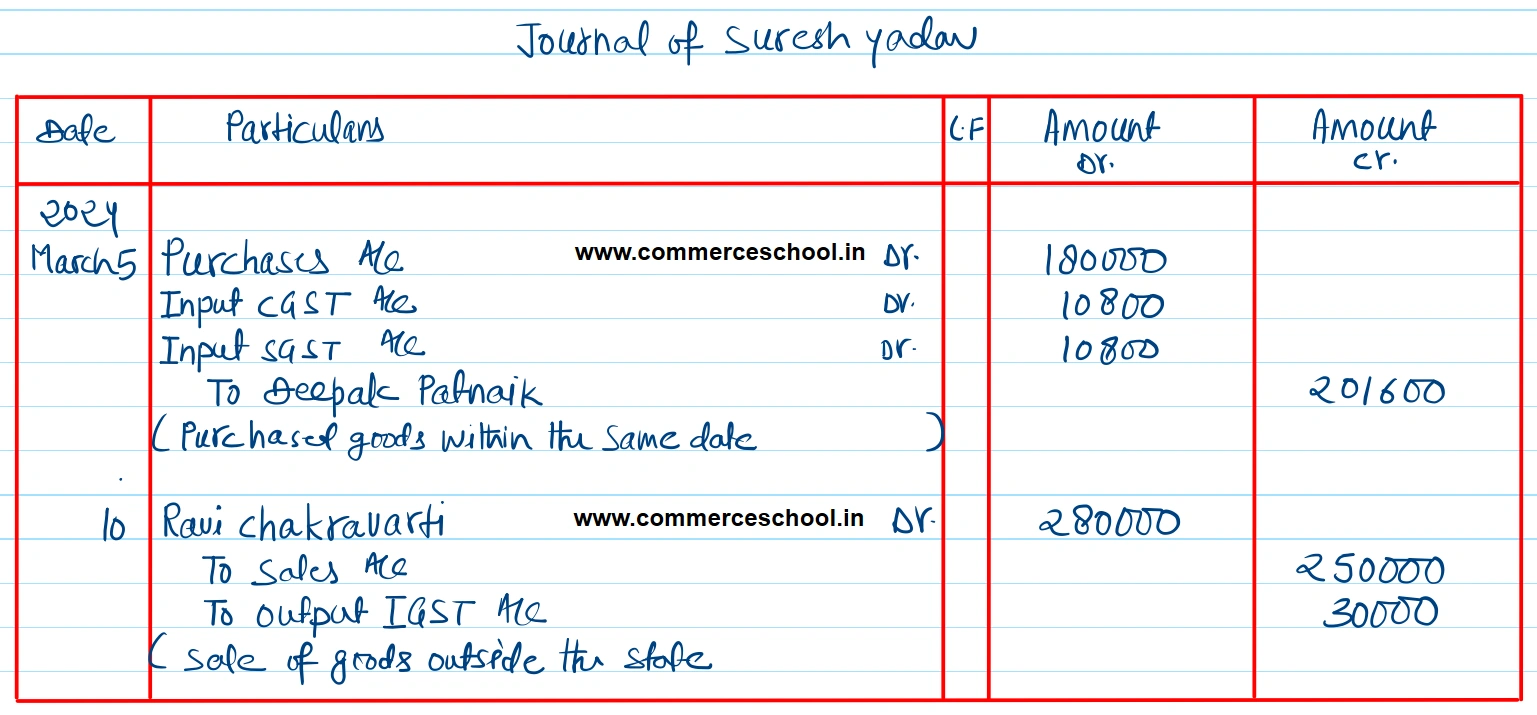 Journal of Suresh yadav
Date Particulars L.F Amount Dr. Amount Cr.
2024
March 5 Purchases A/c www.commerceschool.in Dr. 180000
Input CGST A/c Dr. 10800
Input SGST A/c Dr. 10800
To Deepak Patnaik 201600
(Purchased goods within the same date )
10 Ravi chakravarti www.commerceschool.in Dr. 280000
To Sales A/c 250000
To output IGST A/c 30000
( sale of goods outside the state